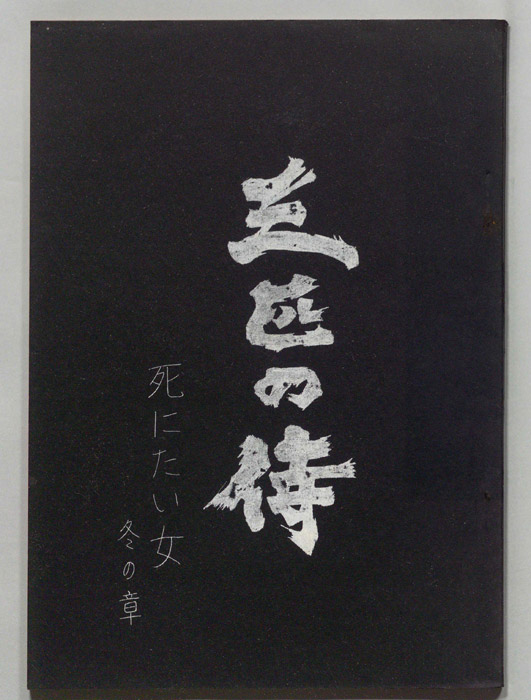 三匹の侍
死にたい女
冬の章